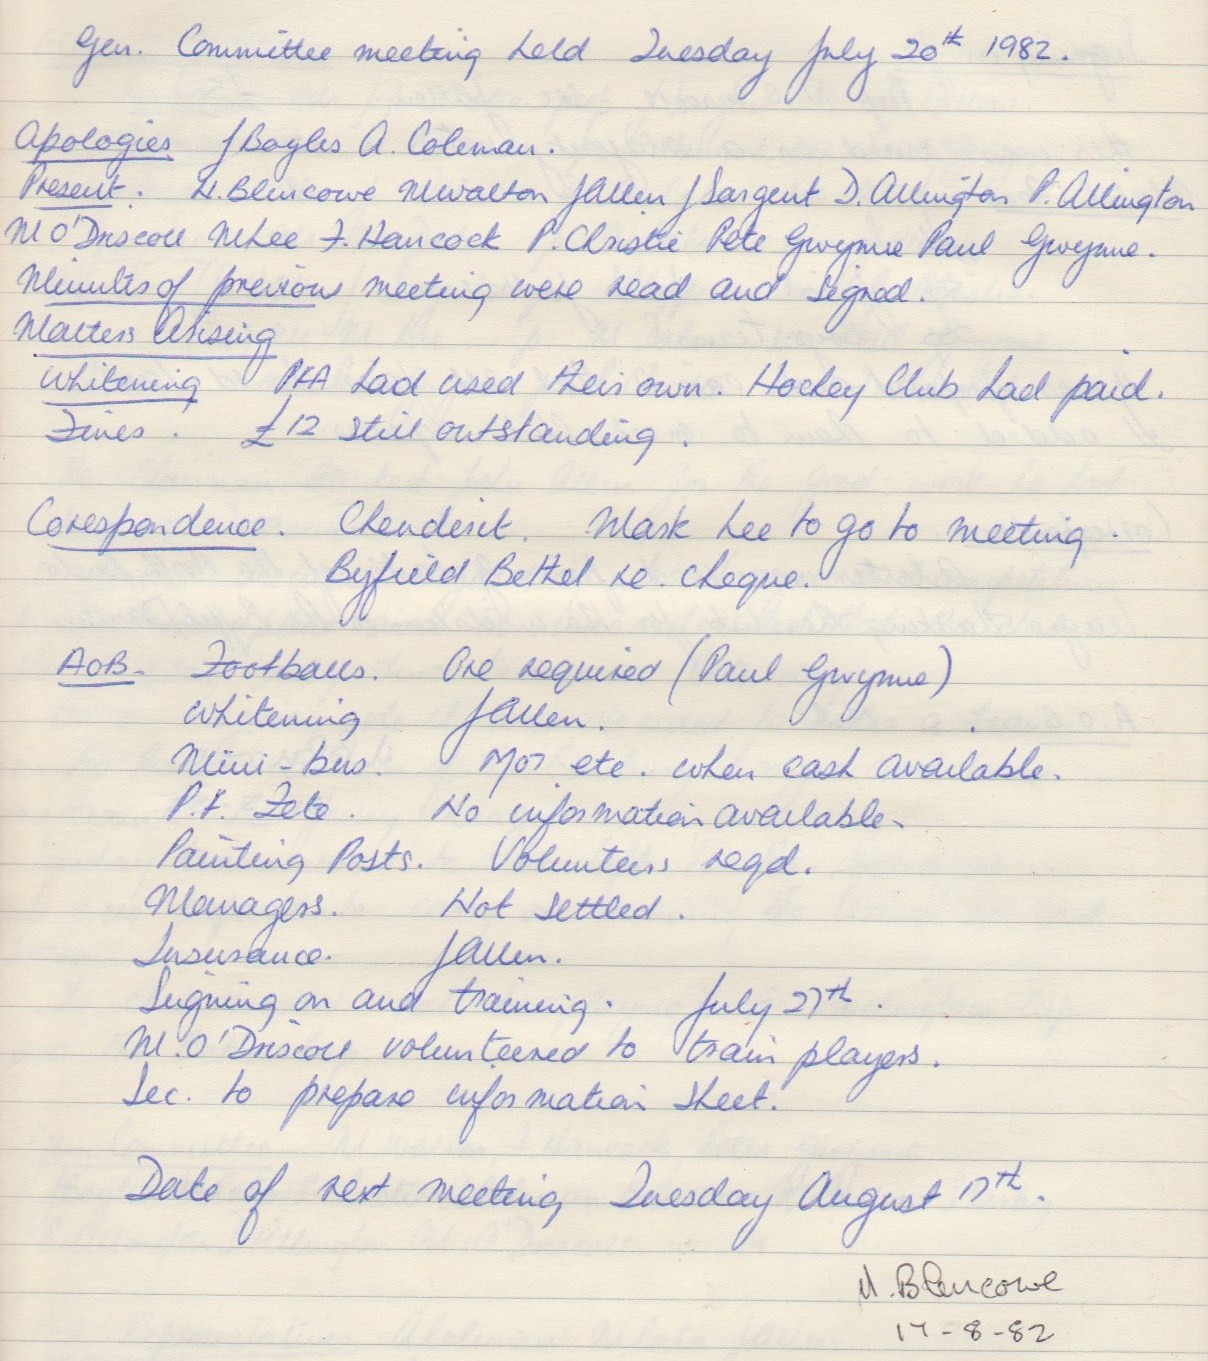 Gen. Committee meeting held Tuesday July 20th 1982.
Apologies J Bayles A. Coleman.
Present. N. Blencowe M Walton J Allen J Sargent D. Allington P. Allington
M O'Driscoll M Lee F. Hancock P. Christie Pete Gwynne Paul Gwynne.
Minutes of previous meeting were read and signed.
Matters Arising
Whitening PFA had used their own. Hockey Club had paid.
Fines. £12 still outstanding.
Corespondence. Chenderit. Mark Lee to go to meeting.
Byfield Bethel re. cheque.
AOB- Footballs. Are required (Paul Gwynne)
Whitening J Allen.
Mini-bus. MOT etc. when cash available.
P.F. Fete. No information available.
Painting Posts. Volunteers reqd.
Managers. Not settled.
Insurance. J Allen.
Signing on and training. July 27th.
M. O'Driscoll volunteered to train players.
Sec. to prepare information sheet.
Date of next meeting Tuesday August 17th.
N. Blencowe
17-8-82